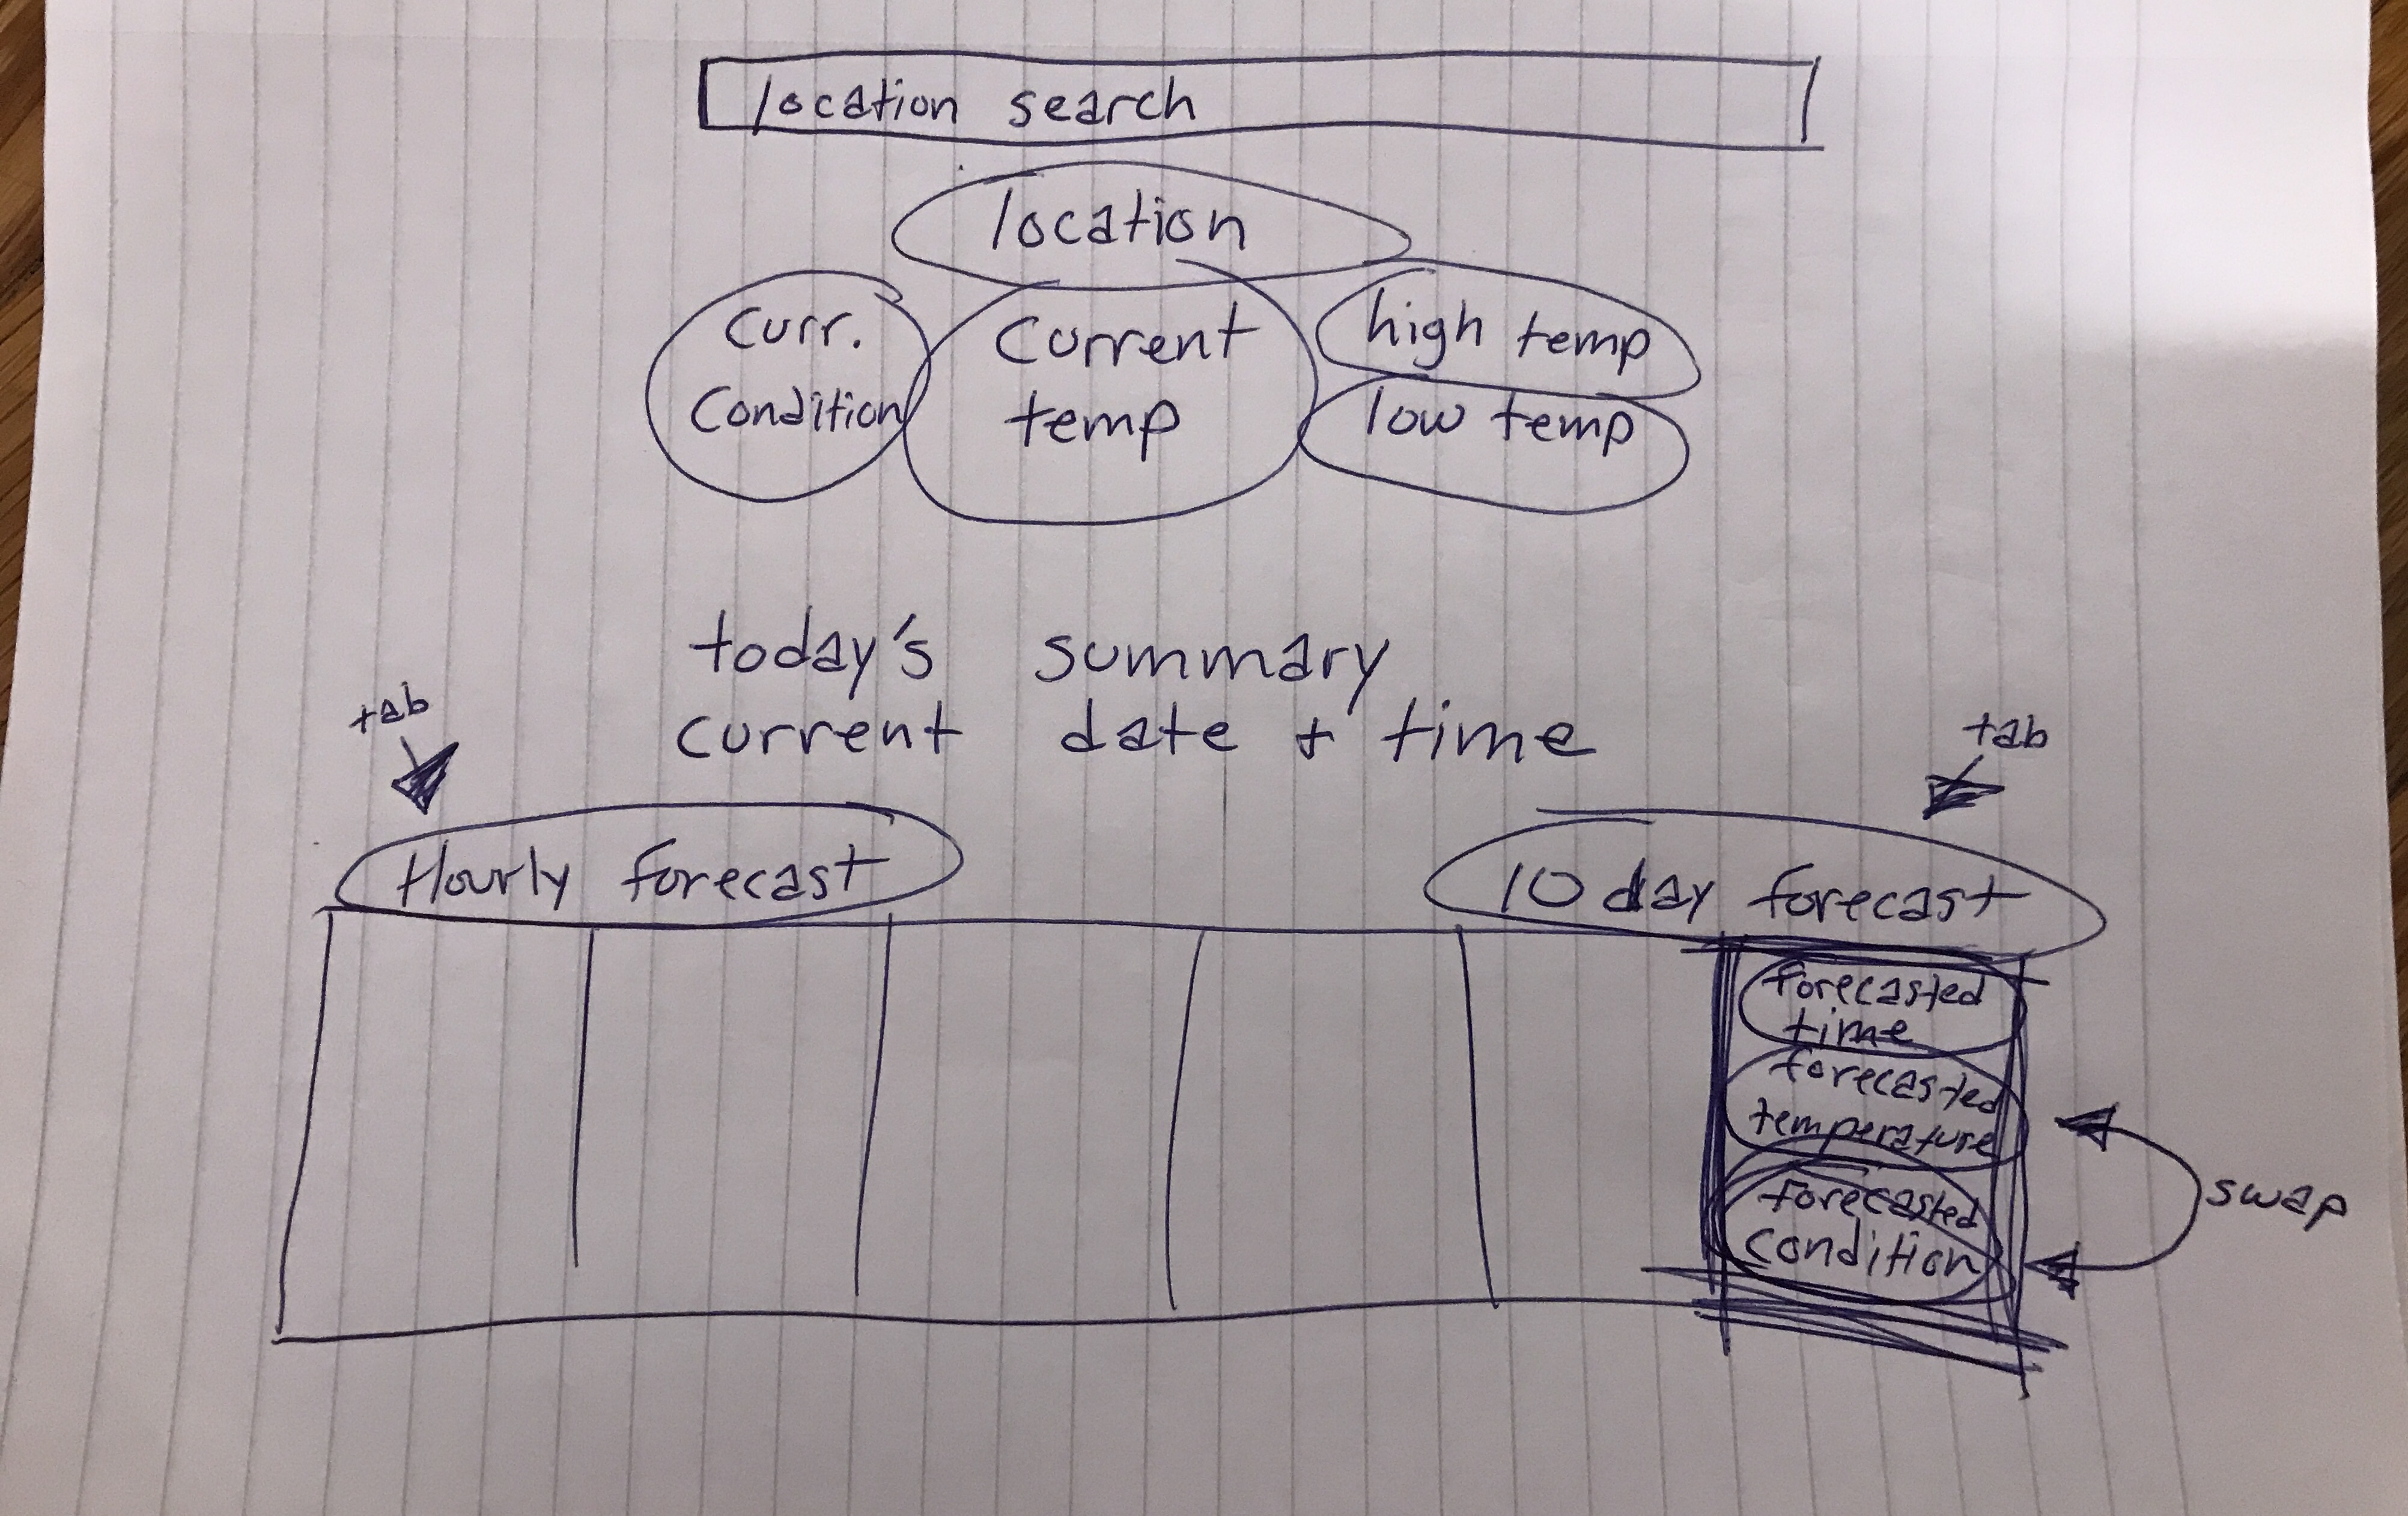 location search
location
Curr.
Condition
Current
temp
high temp
low temp
today's summary
current date + time
tab
tab
Hourly forecast
10 day forecast
forecasted
time
forecasted
temperature
forecasted
condition
swap